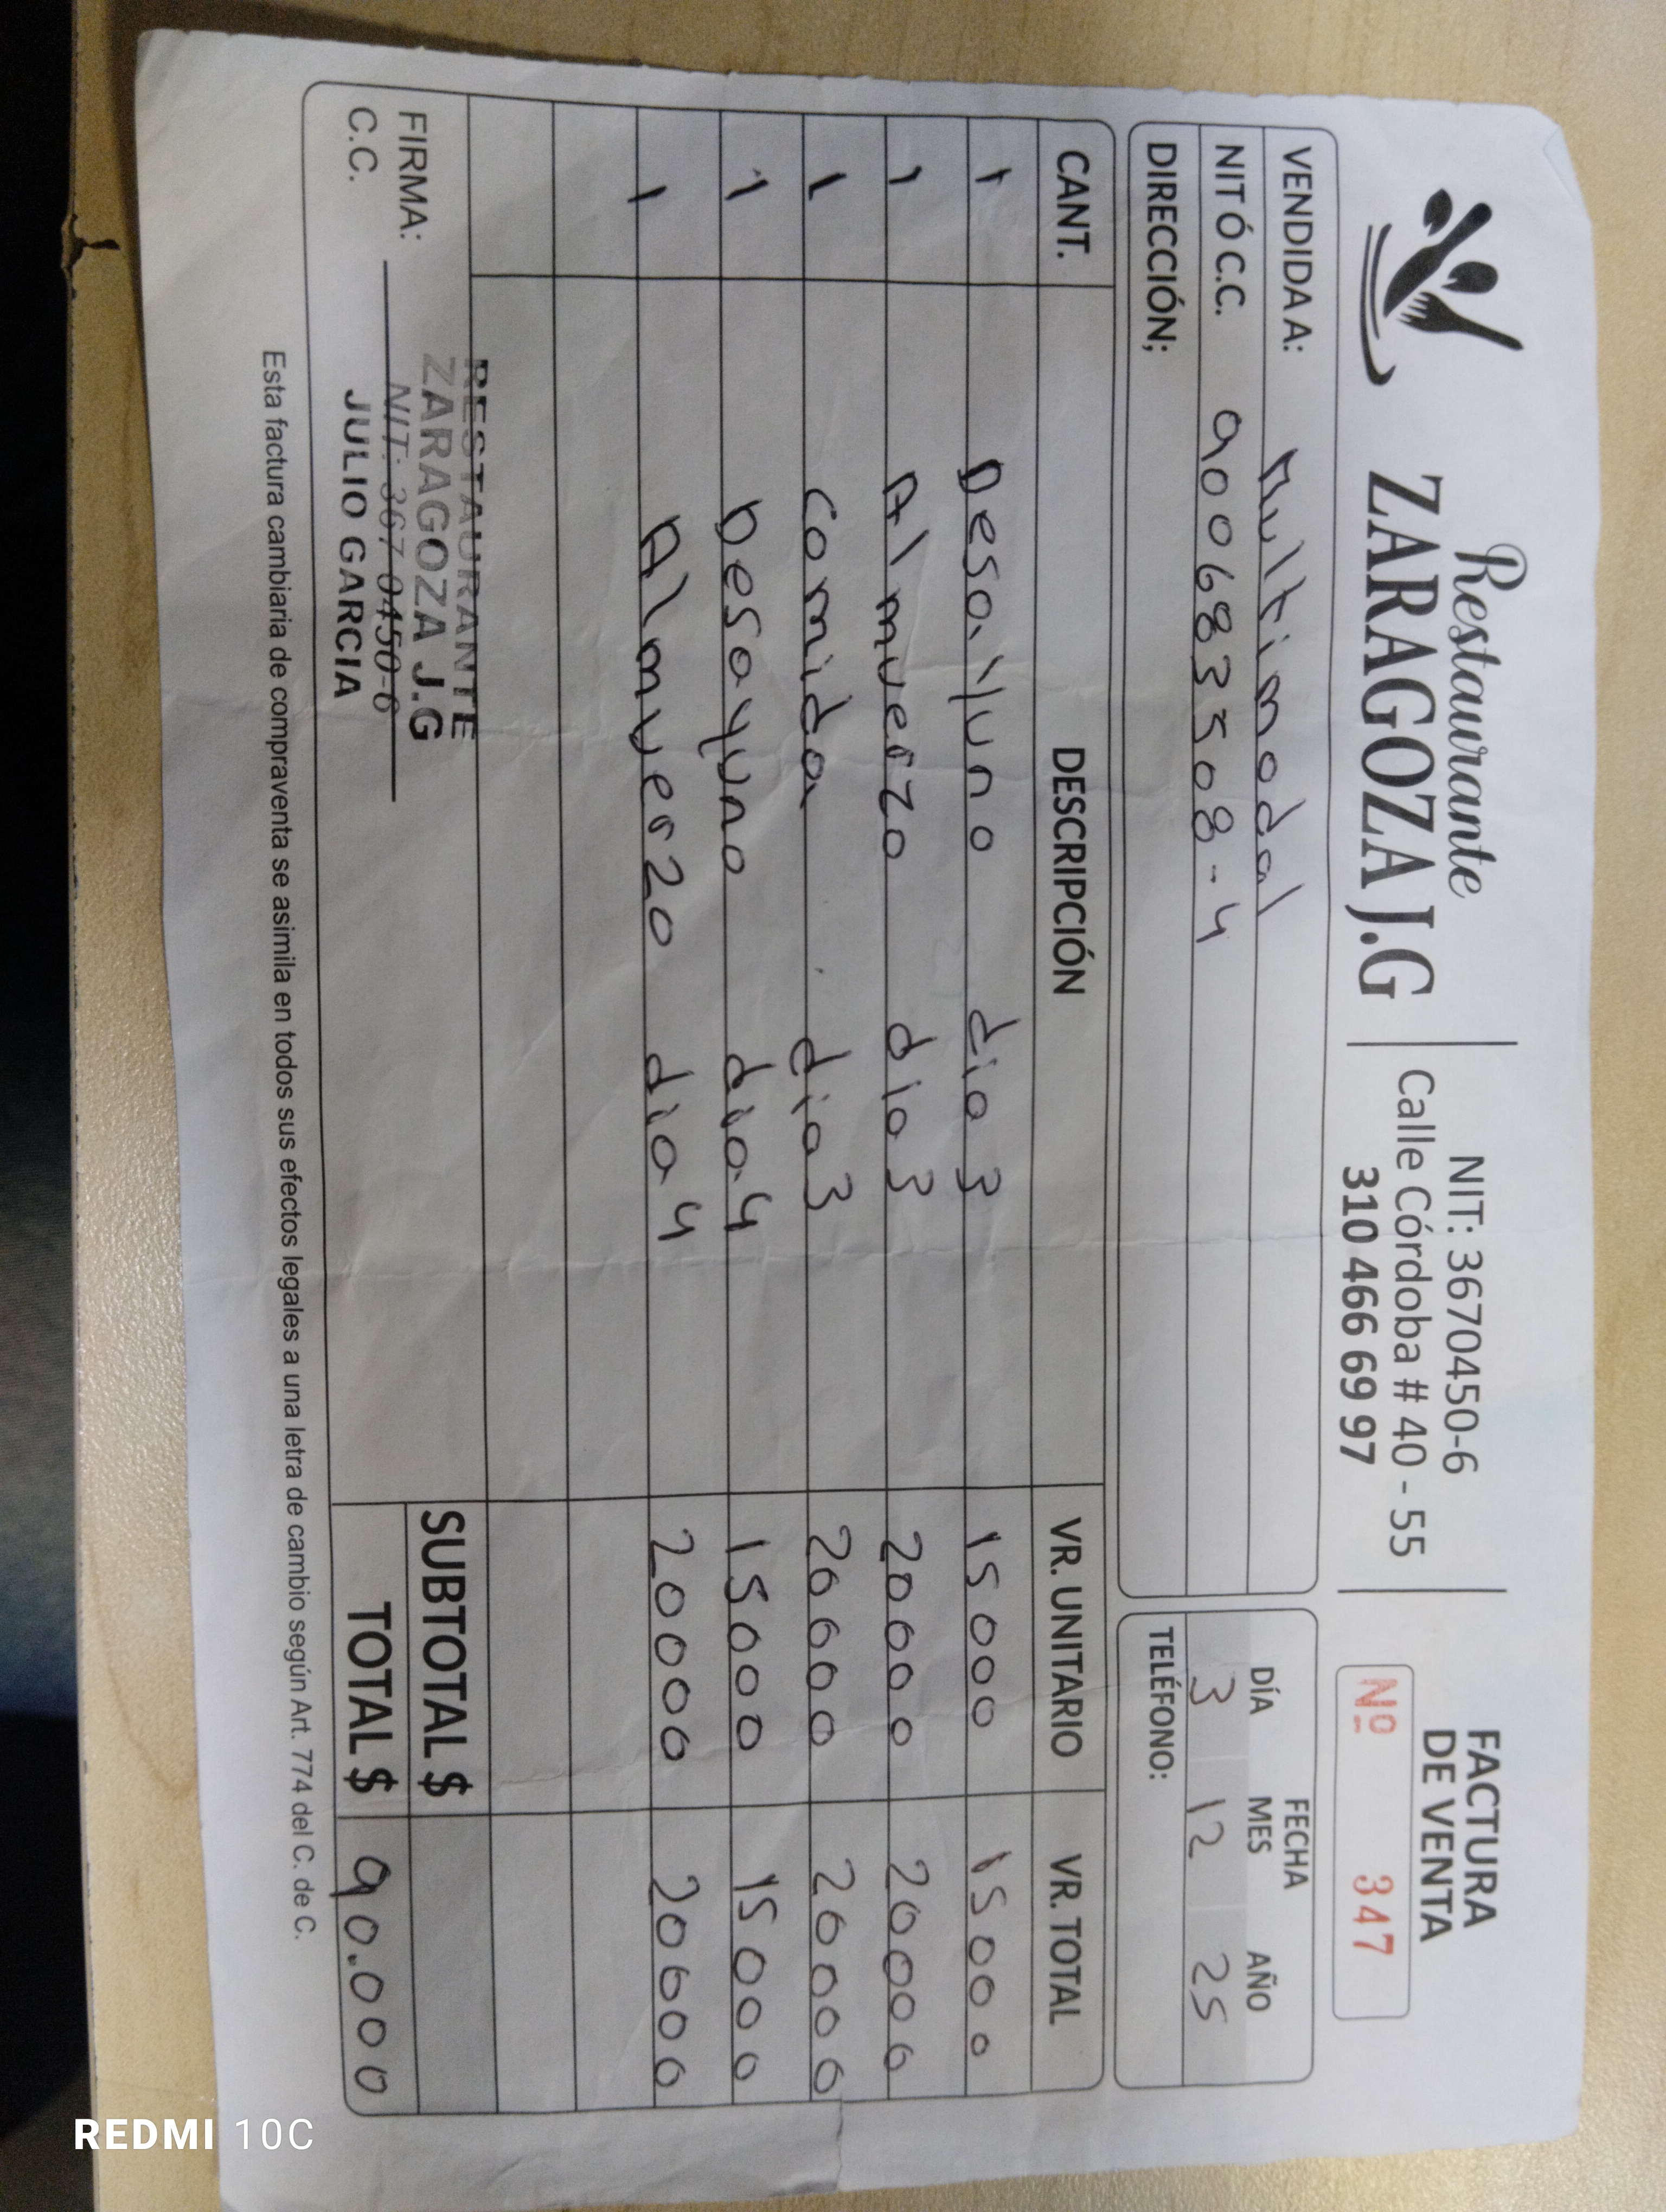 Restaurante
ZARAGOZA J.G
NIT: 3670450-6
Calle Córdoba # 40 - 55
310 466 69 97
FACTURA
DE VENTA
Nº 347
VENDIDA A: Multimodal
NIT Ó C.C. 900683508-4
DIRECCIÓN;
FECHA
DÍA MES AÑO
3 12 25
TELÉFONO:
CANT. DESCRIPCIÓN VR. UNITARIO VR. TOTAL
1 Desayuno dia 3 15000 15000
1 Almuerzo dia 3 20000 20000
1 comida dia 3 20000 20000
1 Desayuno dia 4 15000 15000
1 Almuerzo dia 4 20000 20000
SUBTOTAL $
TOTAL $ 90.000
FIRMA:
C.C.
RESTAURANTE
ZARAGOZA J.G
NIT: 367 0450-6
JULIO GARCIA
Esta factura cambiaria de compraventa se asimila en todos sus efectos legales a una letra de cambio según Art. 774 del C. de C.
REDMI 10C